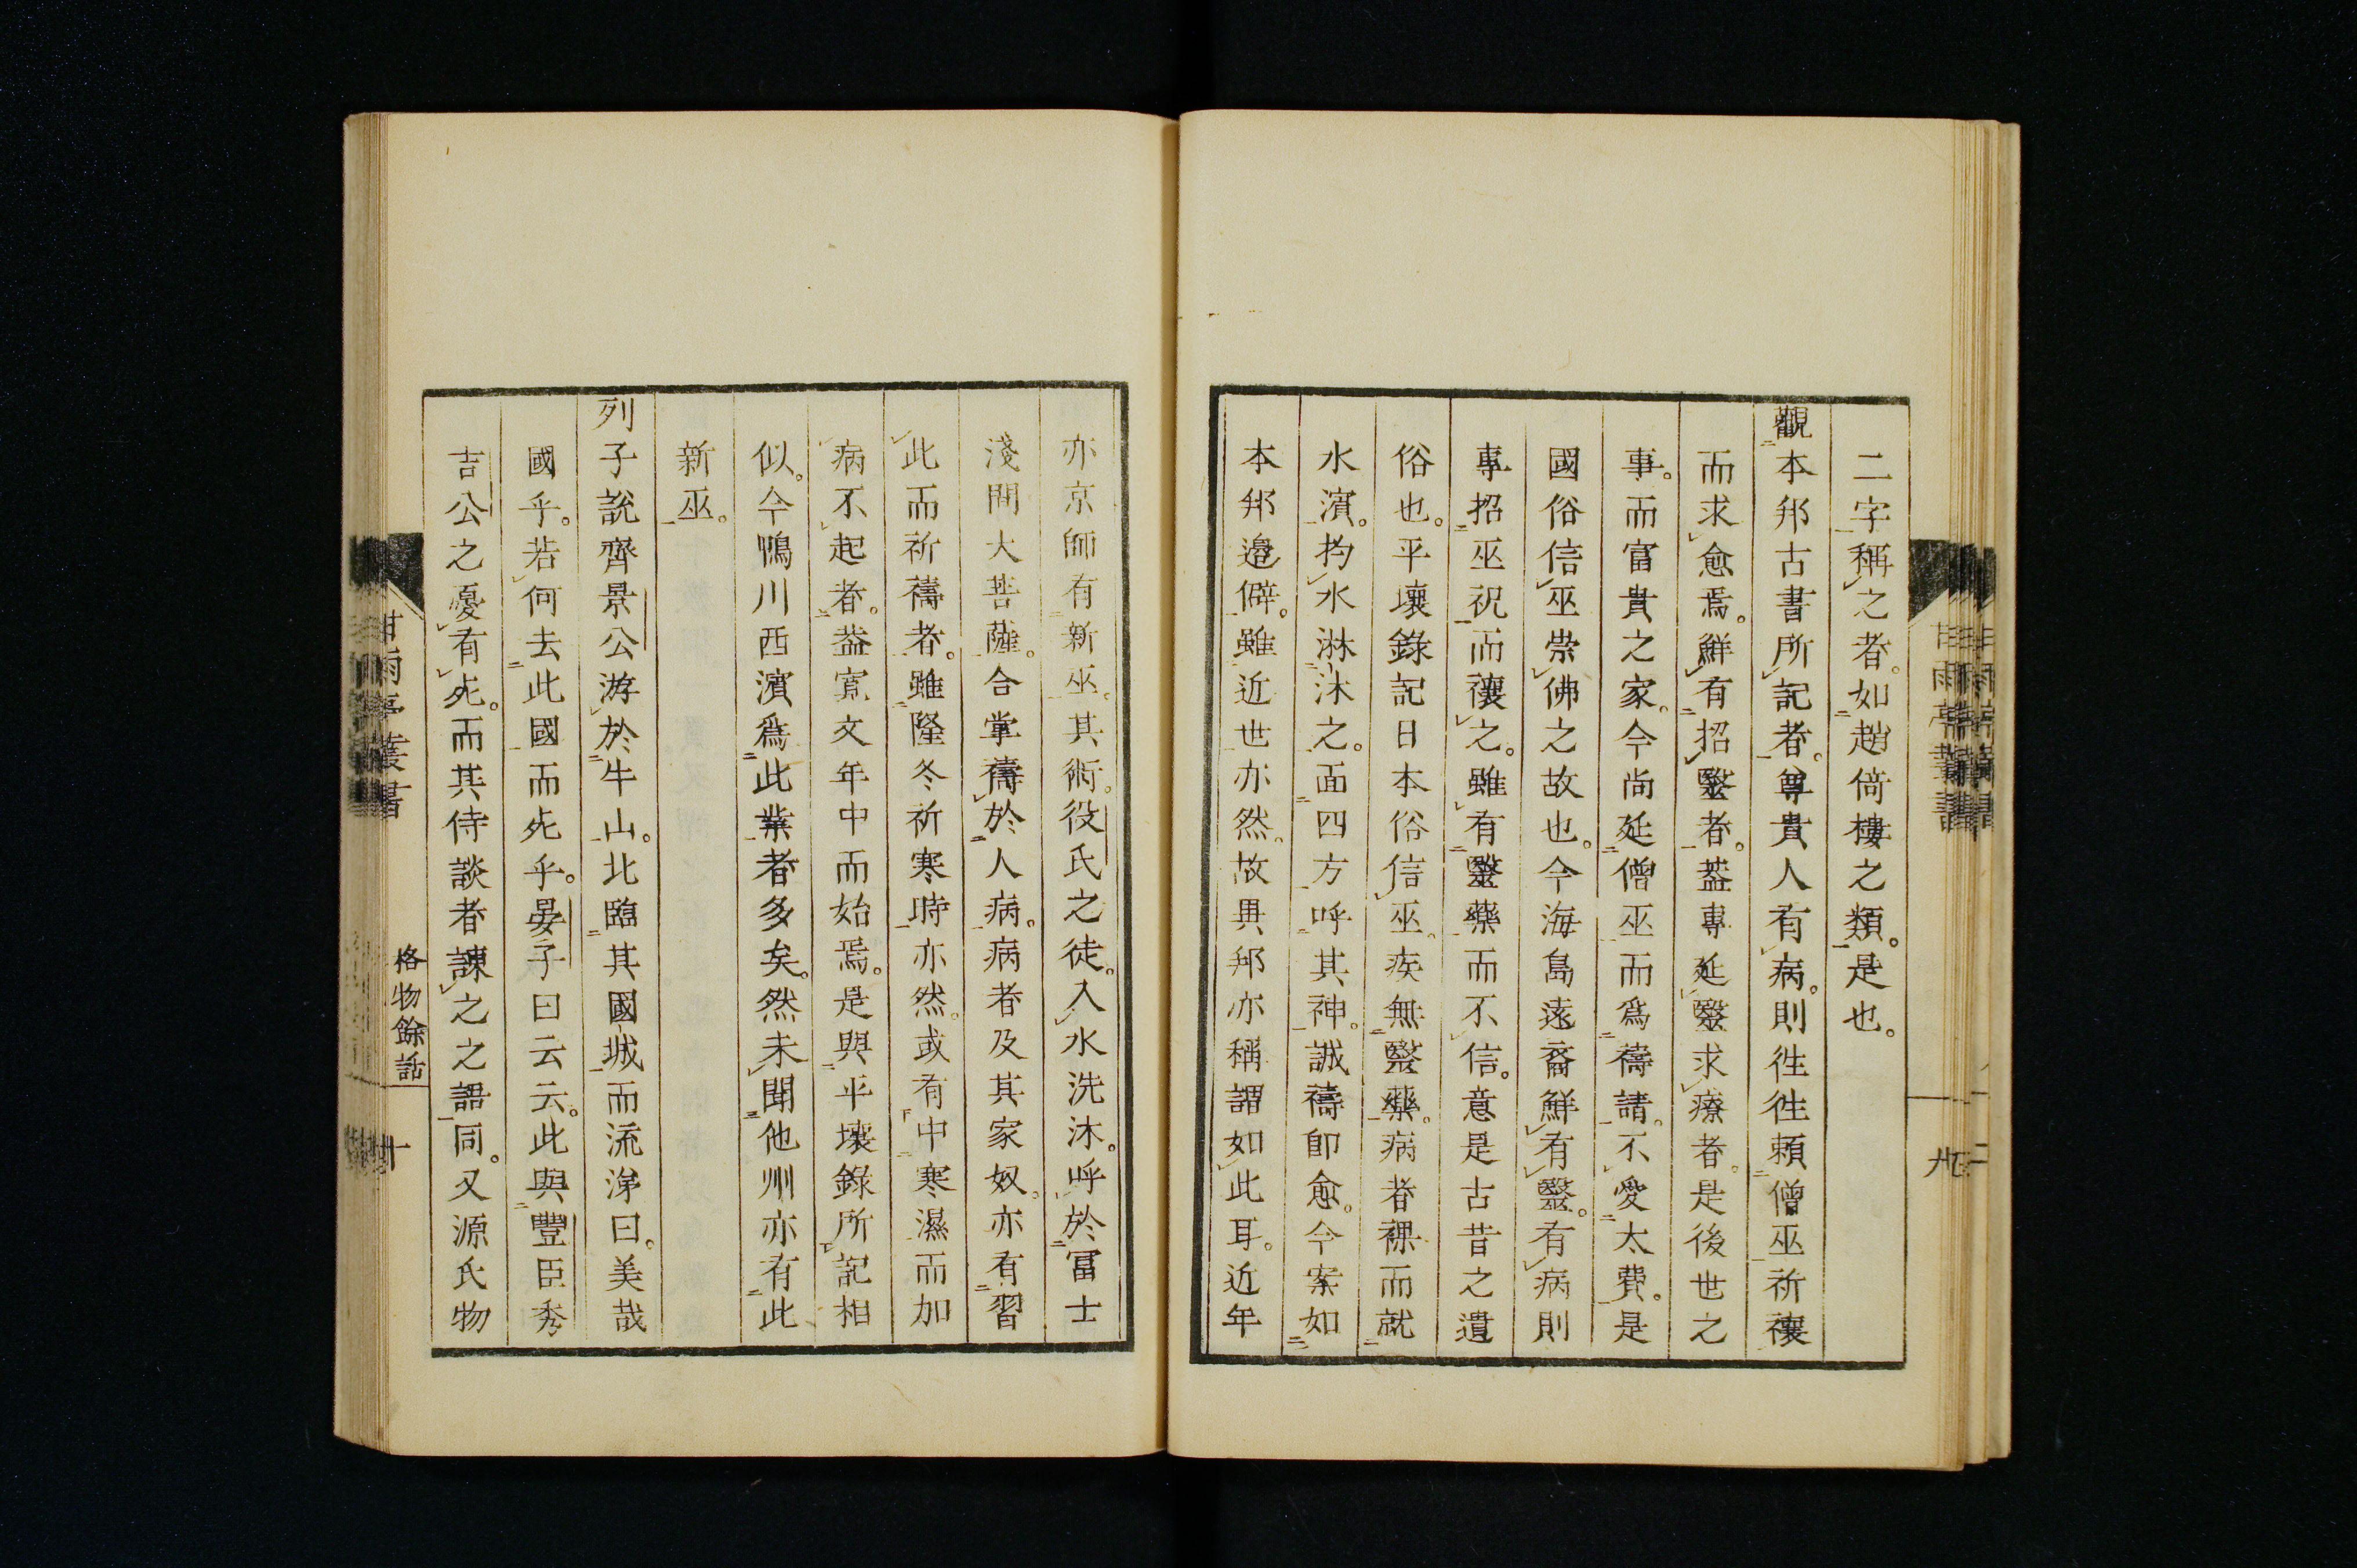 二字稱之者。如趙倚樓之類。是也。
觀本邦古書所記者。尊貴人有病。則往往頼僧巫祈禳
而求愈焉。鮮有招醫者。葢專延醫求療者。是後世之
事。而富貴之家。今尚延僧巫而爲禱請。不愛太費。是
國俗信巫崇佛之故也。今海島遠裔鮮有醫。有病則
專招巫祝而禳之。雖有醫藥而不信。意是古昔之遺
俗也。平壤錄記日本俗信巫。疾無醫藥。病者裸而就
水濱。杓水淋沐之。面四方呼其神。誠禱即愈。今案如
本邦邉僻。雖近世亦然。故異邦亦稱謂如此耳。近年
九
亦京師有新巫。其術。役氏之徒。入水洗沐。呼於冨士
淺間大菩薩。合掌禱於人病。病者及其家奴。亦有習
此而祈禱者。雖隆冬祈寒時亦然。或有中寒濕而加
病不起者。葢寛文年中而始焉。是與平壤錄所記相
似。今鴨川西濱爲此業者多矣。然未聞他州亦有此
新巫。
列子說齊景公游於牛山。北臨其國城而流涕曰。美哉
國乎。若何去此國而死乎。晏子曰云云。此與豐臣秀
吉公之憂有死。而其侍談者諫之之語同。又源氏物
甘雨亭叢書
格物餘話
十